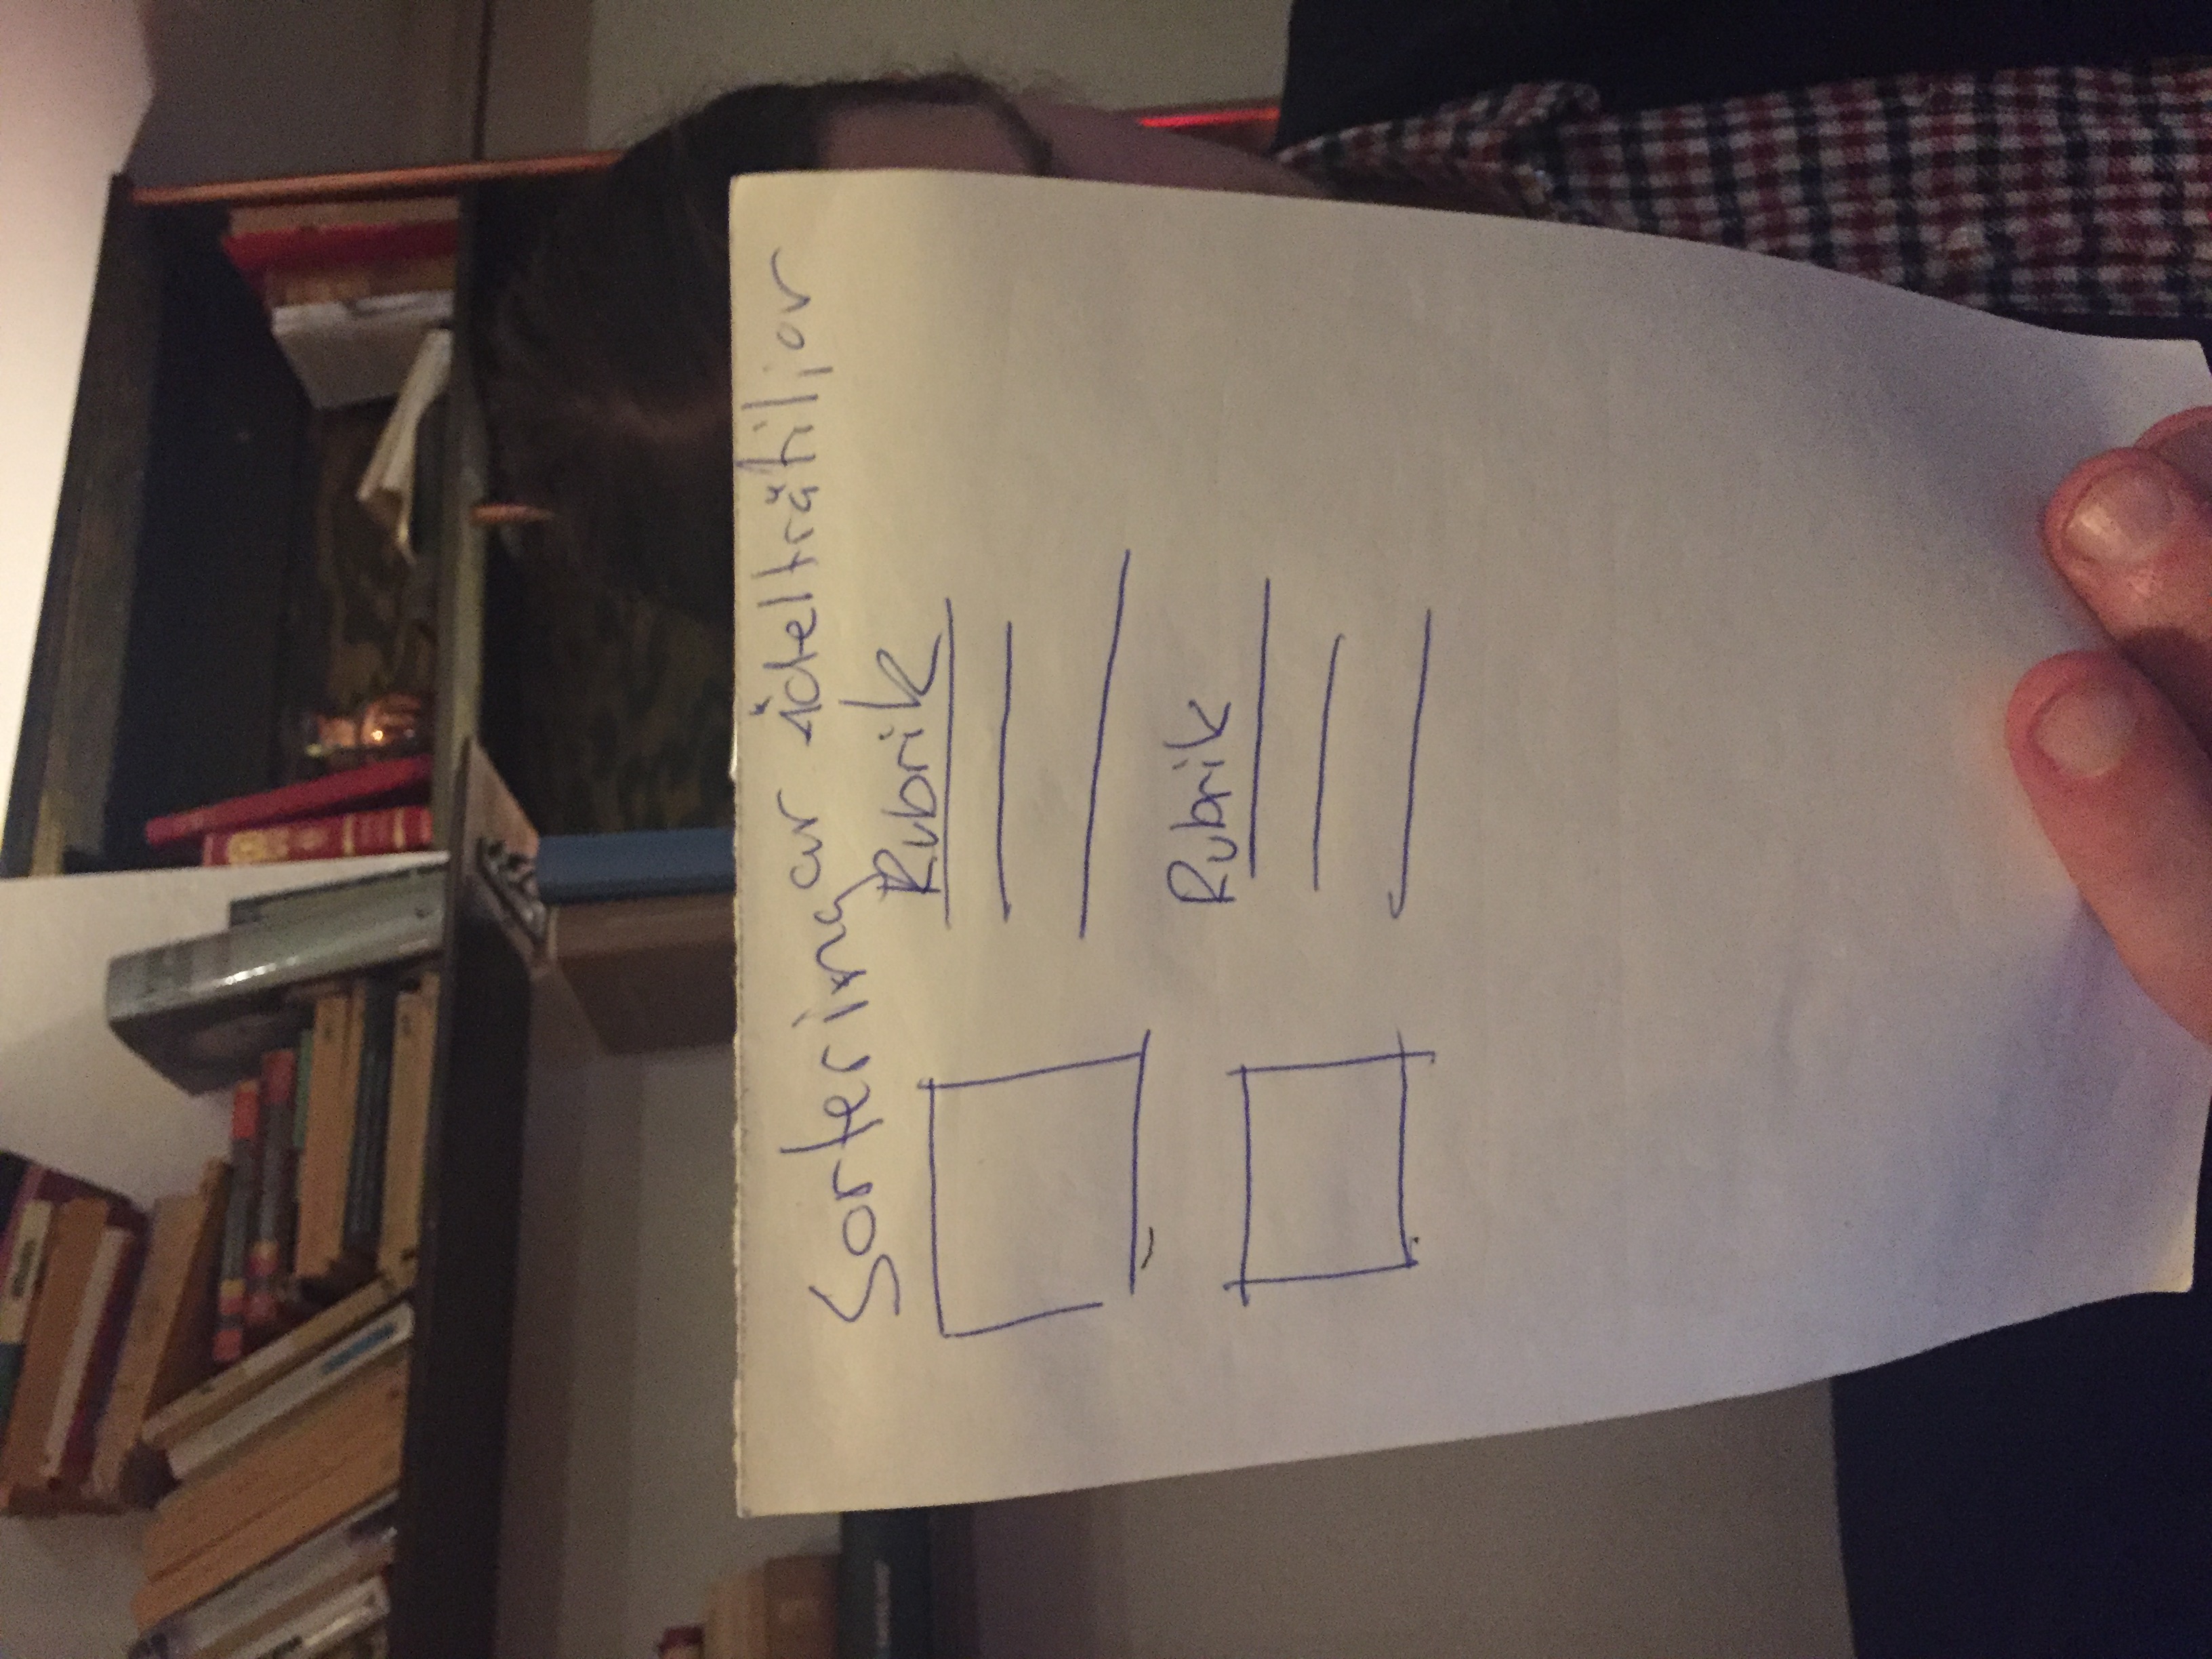 Sorteringar ädelträtiljor
Rubrik
Rubrik